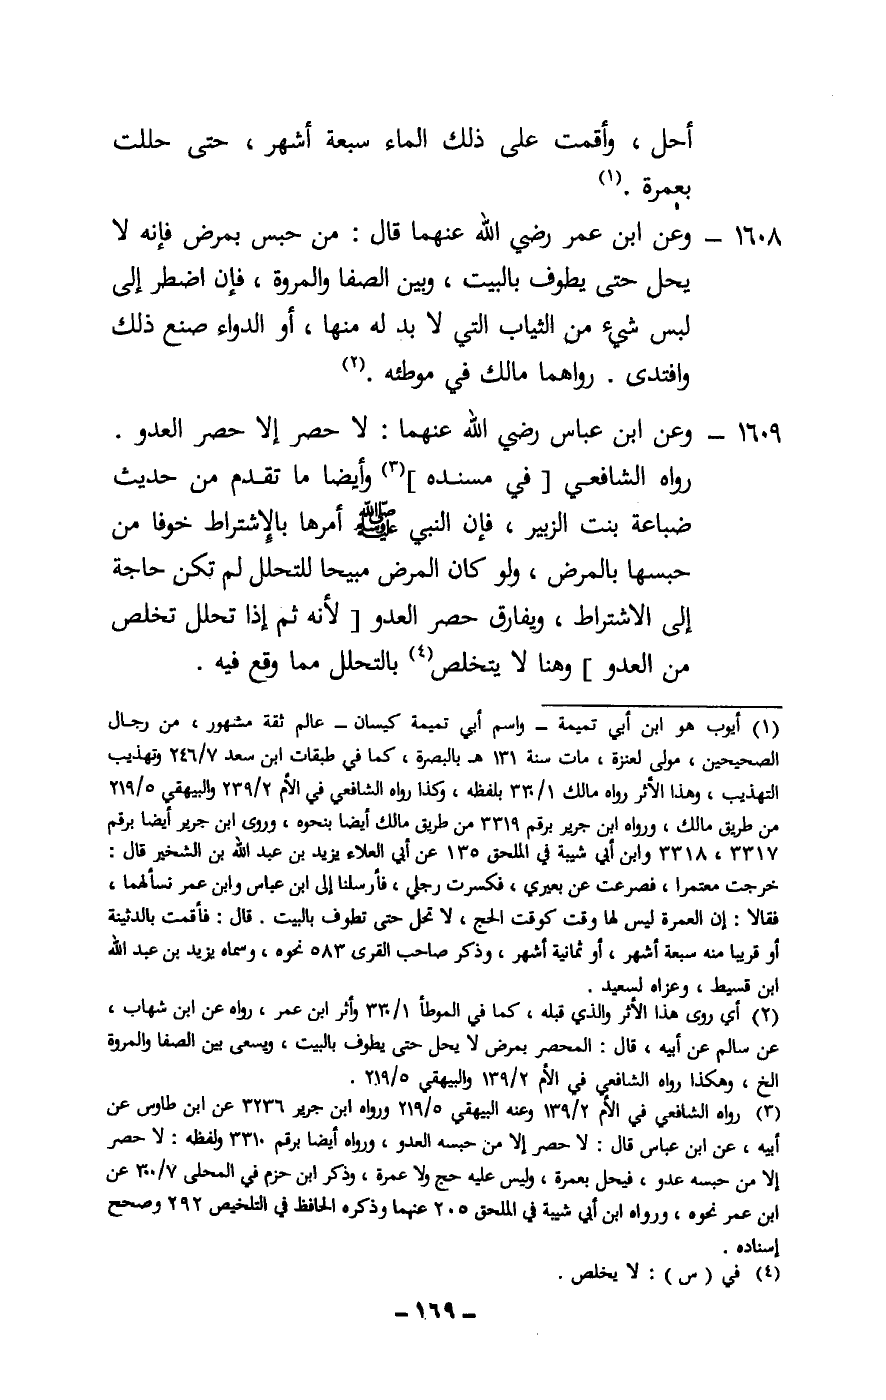 أحل ، وأقمت على ذلك الماء سبعة أشهر ، حتى حللت
بعمرة .(١)
١٦٠٨ – وعن ابن عمر رضي الله عنهما قال : من حبس بمرض فإنه لا
يحل حتى يطوف بالبيت ، وبين الصفا والمروة ، فإن اضطر إلى
لبس شيء من الثياب التي لا بد له منها ، أو الدواء صنع ذلك
وافتدى . رواهما مالك في موطئه .(٢)
١٦٠٩ – وعن ابن عباس رضي الله عنهما : لا حصر إلا حصر العدو .
رواه الشافعي [ في مسنده ](٣) وأيضا ما تقدم من حديث
ضباعة بنت الزبير ، فإن النبي ﷺ أمرها بالإشتراط خوفا من
حبسها بالمرض ، ولو كان المرض مبيحا للتحلل لم تكن حاجة
إلى الاشتراط ، ويفارق حصر العدو [ لأنه ثم إذا تحلل تخلص
من العدو ] وهنا لا يتخلص(٤) بالتحلل مما وقع فيه .
(١) أيوب هو ابن أبي تميمة – واسم أبي تميمة كيسان – عالم ثقة مشهور ، من رجال
الصحيحين ، مولى لعنزة ، مات سنة ١٣١ هـ بالبصرة ، كما في طبقات ابن سعد ٢٤٦/٧ وتهذيب
التهذيب ، وهذا الأثر رواه مالك ٣٣٠/١ بلفظه ، وكذا رواه الشافعي في الأم ٢٣٩/٢ والبيهقي ٢١٩/٥
من طريق مالك ، ورواه ابن جرير برقم ٣٣١٩ من طريق مالك أيضا بنحوه ، وروى ابن جرير أيضا برقم
٣٣١٧ ، ٣٣١٨ وابن أبي شيبة في الملحق ١٣٥ عن أبي العلاء يزيد بن عبد الله بن الشخير قال :
خرجت معتمرا ، فصرعت عن بعيري ، فكسرت رجلي ، فأرسلنا إلى ابن عباس وابن عمر نسألهما ،
فقالا : إن العمرة ليس لها وقت كوقت الحج ، لا تحل حتى تطوف بالبيت . قال : فأقمت بالدثينة
أو قريبا منه سبعة أشهر ، أو ثمانية أشهر ، وذكر صاحب القرى ٥٨٣ نحوه ، وسماه يزيد بن عبد الله
ابن قسيط ، وعزاه لسعيد .
(٢) أي روى هذا الأثر والذي قبله ، كما في الموطأ ٣٣٠/١ وأثر ابن عمر ، رواه عن ابن شهاب ،
عن سالم عن أبيه ، قال : المحصر بمرض لا يحل حتى يطوف بالبيت ، ويسعى بين الصفا والمروة
الخ ، وهكذا رواه الشافعي في الأم ١٣٩/٢ والبيهقي ٢١٩/٥ .
(٣) رواه الشافعي في الأم ١٣٩/٢ وعنه البيهقي ٢١٩/٥ ورواه ابن جرير ٣٢٣٦ عن ابن طاوس عن
أبيه ، عن ابن عباس قال : لا حصر إلا من حبسه العدو ، ورواه أيضا برقم ٣٣١٠ ولفظه : لا حصر
إلا من حبسه عدو ، فيحل بعمرة ، وليس عليه حج ولا عمرة ، وذكر ابن حزم في المحلى ٣٠٠/٧ عن
ابن عمر نحوه ، ورواه ابن أبي شيبة في الملحق ٢٠٥ عنهما وذكره الحافظ في التلخيص ٢٩٢ وصحح
إسناده .
(٤) في ( س ) : لا يخلص .
– ١٦٩ –